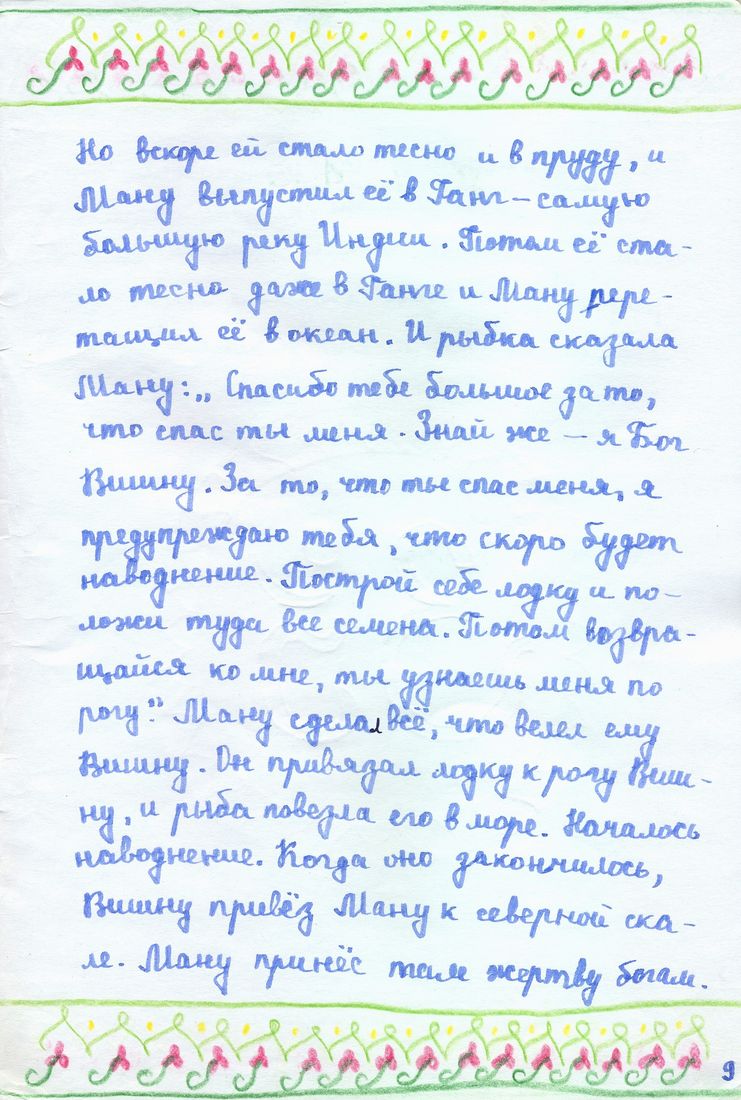 Но вскоре ей стало тесно и в пруду, и
Ману выпустил её в Ганг – самую
большую реку Индии. Потом ей ста-
ло тесно даже в Ганге и Ману пере-
тащил её в океан. И рыбка сказала
Ману: „Спасибо тебе большое за то,
что спас ты меня. Знай же – я Бог
Вишну. За то, что ты спас меня, я
предупреждаю тебя, что скоро будет
наводнение. Построй себе лодку и по-
ложи туда все семена. Потом возвра-
щайся ко мне, ты узнаешь меня по
рогу." Ману сделал всё, что велел ему
Вишну. Он привязал лодку к рогу Виш-
ну, и рыба повезла его в море. Началось
наводнение. Когда оно закончилось,
Вишну привёз Ману к северной ска-
ле. Ману принёс там жертву богам.
9